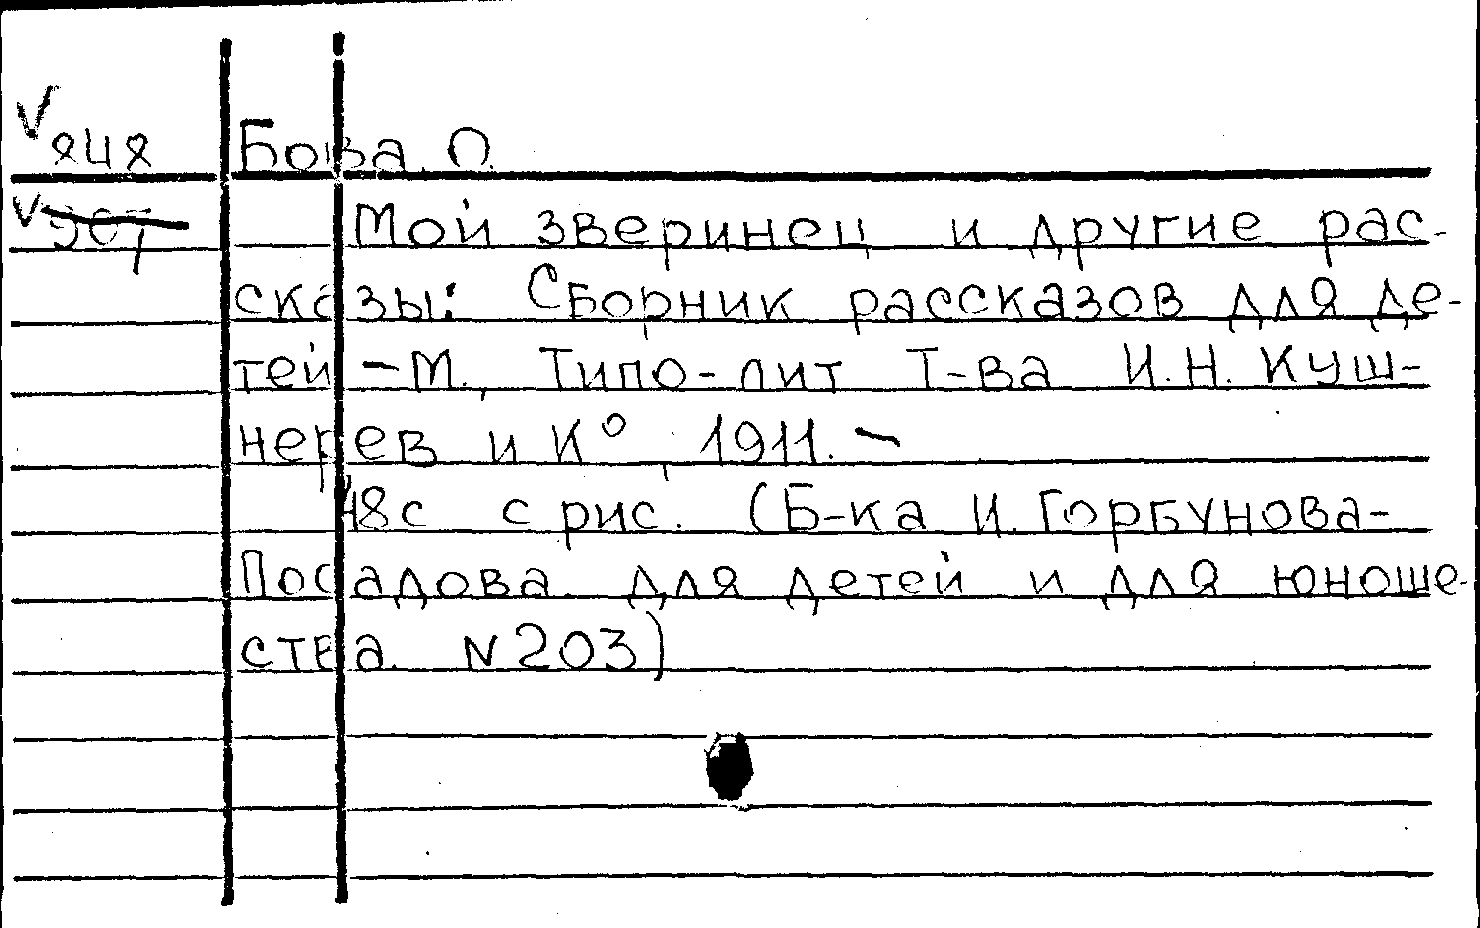 V 848
Бова О.
V
Мой зверинец и другие рас-
сказы: Сборник рассказов для де-
тей – М., Типо-лит Т-ва И.Н. Куш-
нерев и К° 1911. –
48с с рис. (Б-ка И. Горбунова-
Посадова для детей и для юноше-
ства. N 203)